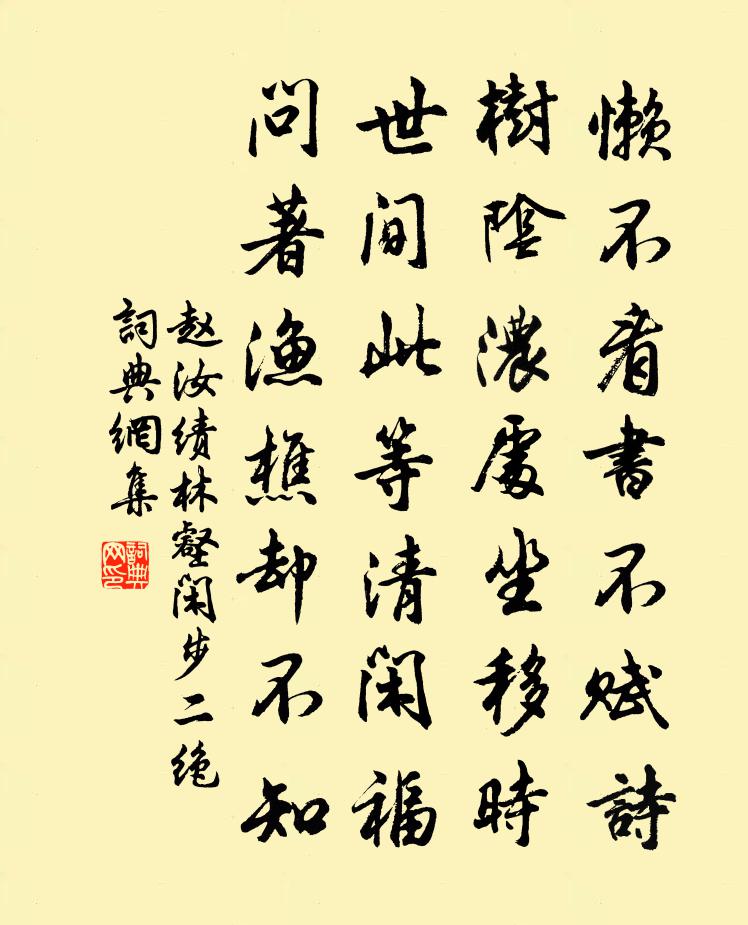 懒不看書不赋詩
樹陰濃處坐移時
世间此等清闲福
问著渔樵却不知
赵汝绩林壑闲步二绝
詞典網集
詞典网印